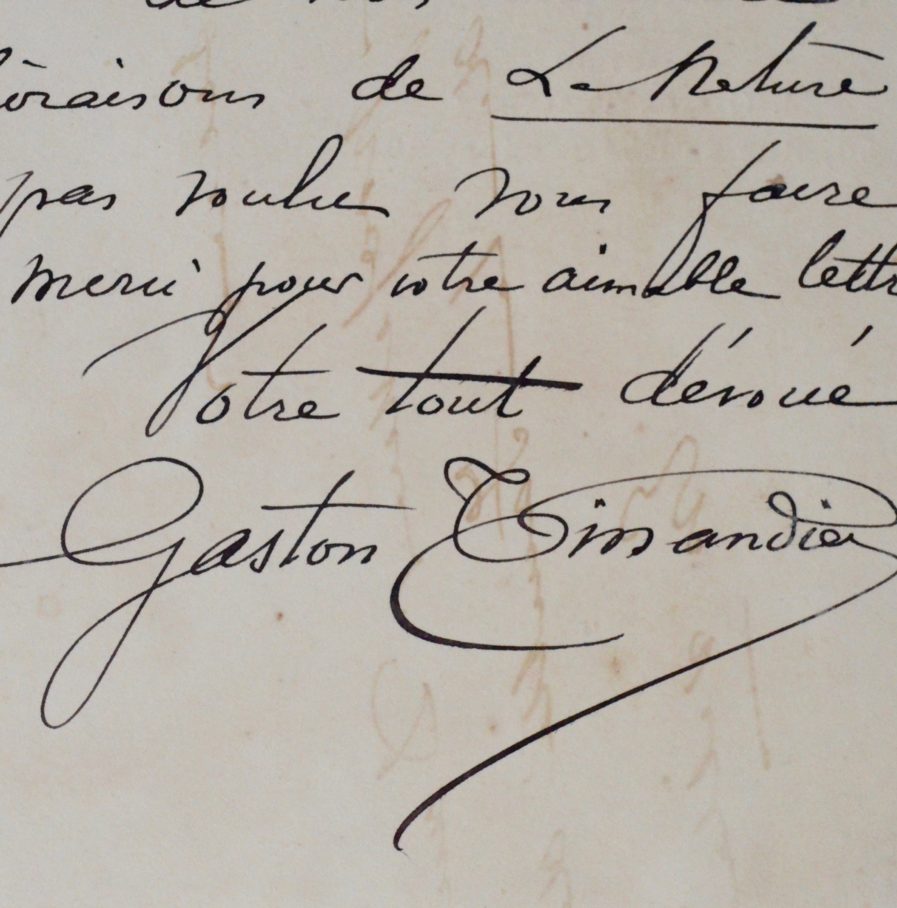 de nos
livraisons de La Nature
pas voulu vous faire
merci pour votre aimable lettr
Votre tout dévoué
Gaston Tissandier